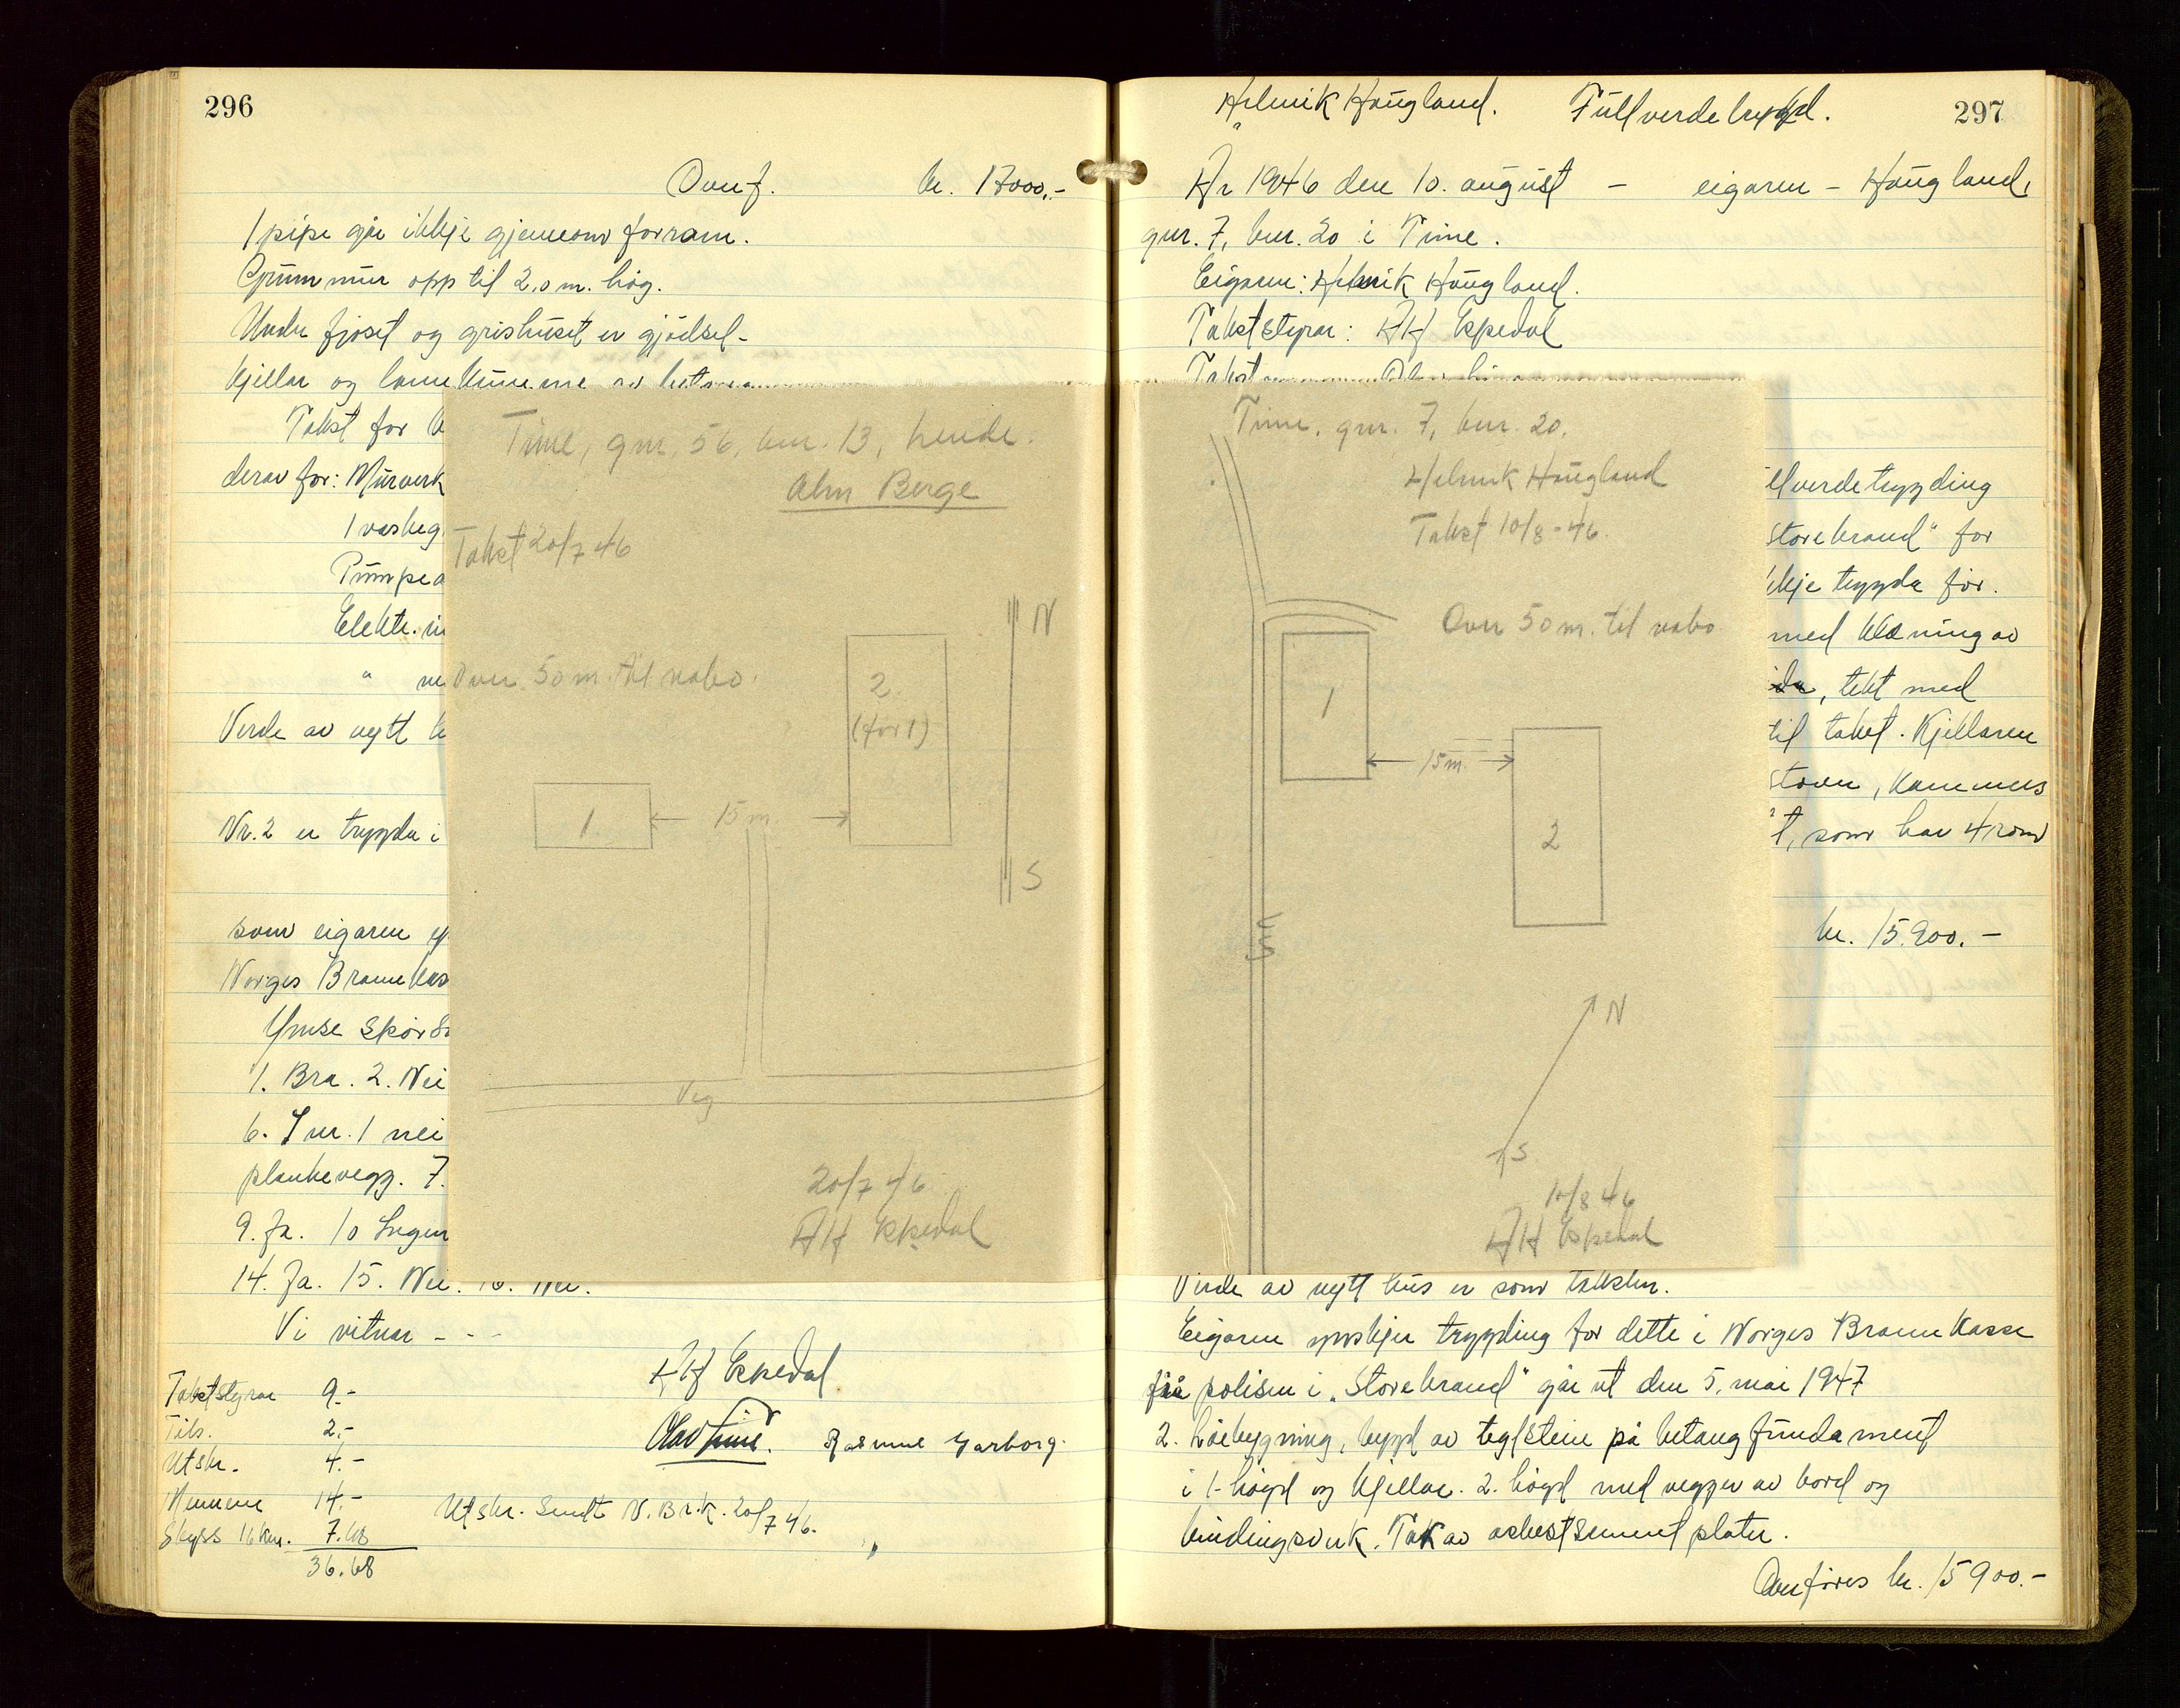 296
Overf. kr. 17000.-
1 pipe går ikkje gjennom forram.
Grunnmur opp til 2,0 m. høg.
Under fjøset og grishuset er gjødsel-
kjellar og
Takst for
derav for: Murverk
1 vaskeg
Pumpea
Elektr. in
"
Verde av nytt
Nr. 2 er trygda i
som eigaren
Norges Brannkas
Ymse spørs
1. Bra. 2. Nei
6. I nr. 1 nei
plankevegg. 7.
9. Ja. 10 Ingen
14. Ja. 15. Nei. 16. Nei.
Vi vitnar - - -
AH Espedal
Olav Time. Rasmus Garborg.
Takststyrar 9.-
Tils. 2.-
Utskr. 4.-
Mennene 14.-
Skyss 16 km. 7.68
36.68
Utskr. sendt N.Br.k. 20/7 46.
Time, gnr. 56, bnr. 13,
Berge
Takst 20/7 46
Over 50 m. til nabo.
N
2.
(før 1)
1.
15 m.
S
Veg
20/7 46
AH Espedal
Helmik Haugland. Fullverdetrygd.
297
År 1946 den 10. august - eigaren - Haugland,
gnr. 7, bnr. 20 i Time.
Eigaren: Helmik Haugland.
Takststyrar: AH Espedal
Time, gnr. 7, bnr. 20.
Helmik Haugland
Takst 10/8-46.
Over 50 m. til nabo
1
15 m.
2
Veg
N
S
10/8 46
AH Espedal
llverdetrygding
Storebrand" for
kkje trygda før.
med klæning av
, tekt med
til taket. Kjellaren
stova, kammers
t, som har 4 rom
kr. 15.900.-
Verde av nytt hus er som taksten.
Eigaren ynskjer trygding for dette i Norges Brannkasse
frå polisen i „Storebrand" går ut den 5. mai 1947
2. Løebygning, bygd av teglstein på betong fundament
i 1. høgd og kjellar. 2. høgd med vegger av bord og
bindingsverk. Tak av asbestsementplater.
Overføres kr. 15900.-